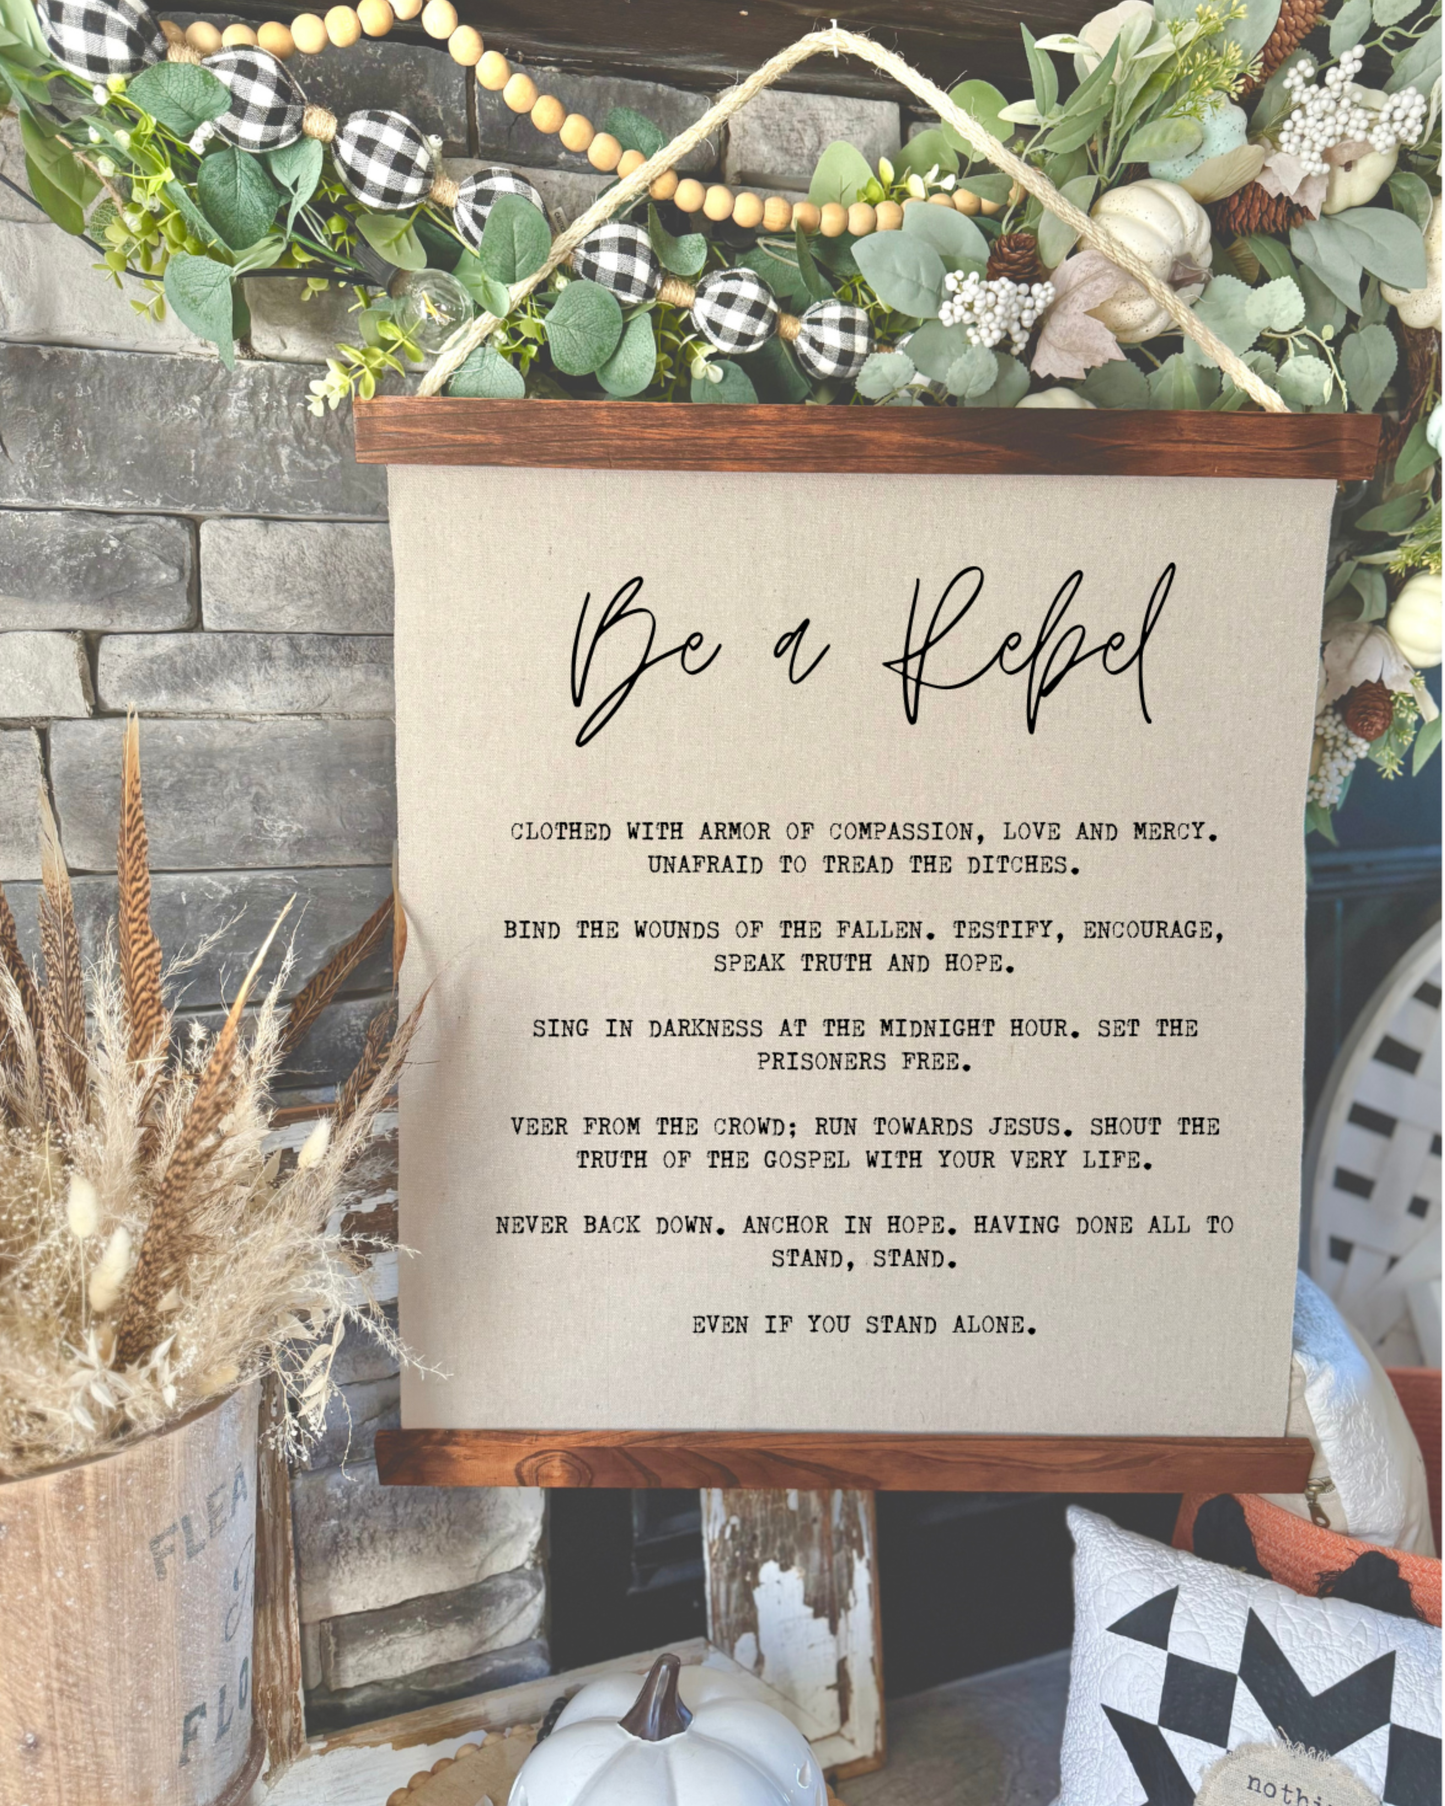 Be a Rebel
CLOTHED WITH ARMOR OF COMPASSION, LOVE AND MERCY.
UNAFRAID TO TREAD THE DITCHES.
BIND THE WOUNDS OF THE FALLEN. TESTIFY, ENCOURAGE,
SPEAK TRUTH AND HOPE.
SING IN DARKNESS AT THE MIDNIGHT HOUR. SET THE
PRISONERS FREE.
VEER FROM THE CROWD; RUN TOWARDS JESUS. SHOUT THE
TRUTH OF THE GOSPEL WITH YOUR VERY LIFE.
NEVER BACK DOWN. ANCHOR IN HOPE. HAVING DONE ALL TO
STAND, STAND.
EVEN IF YOU STAND ALONE.
FLEA
FLO